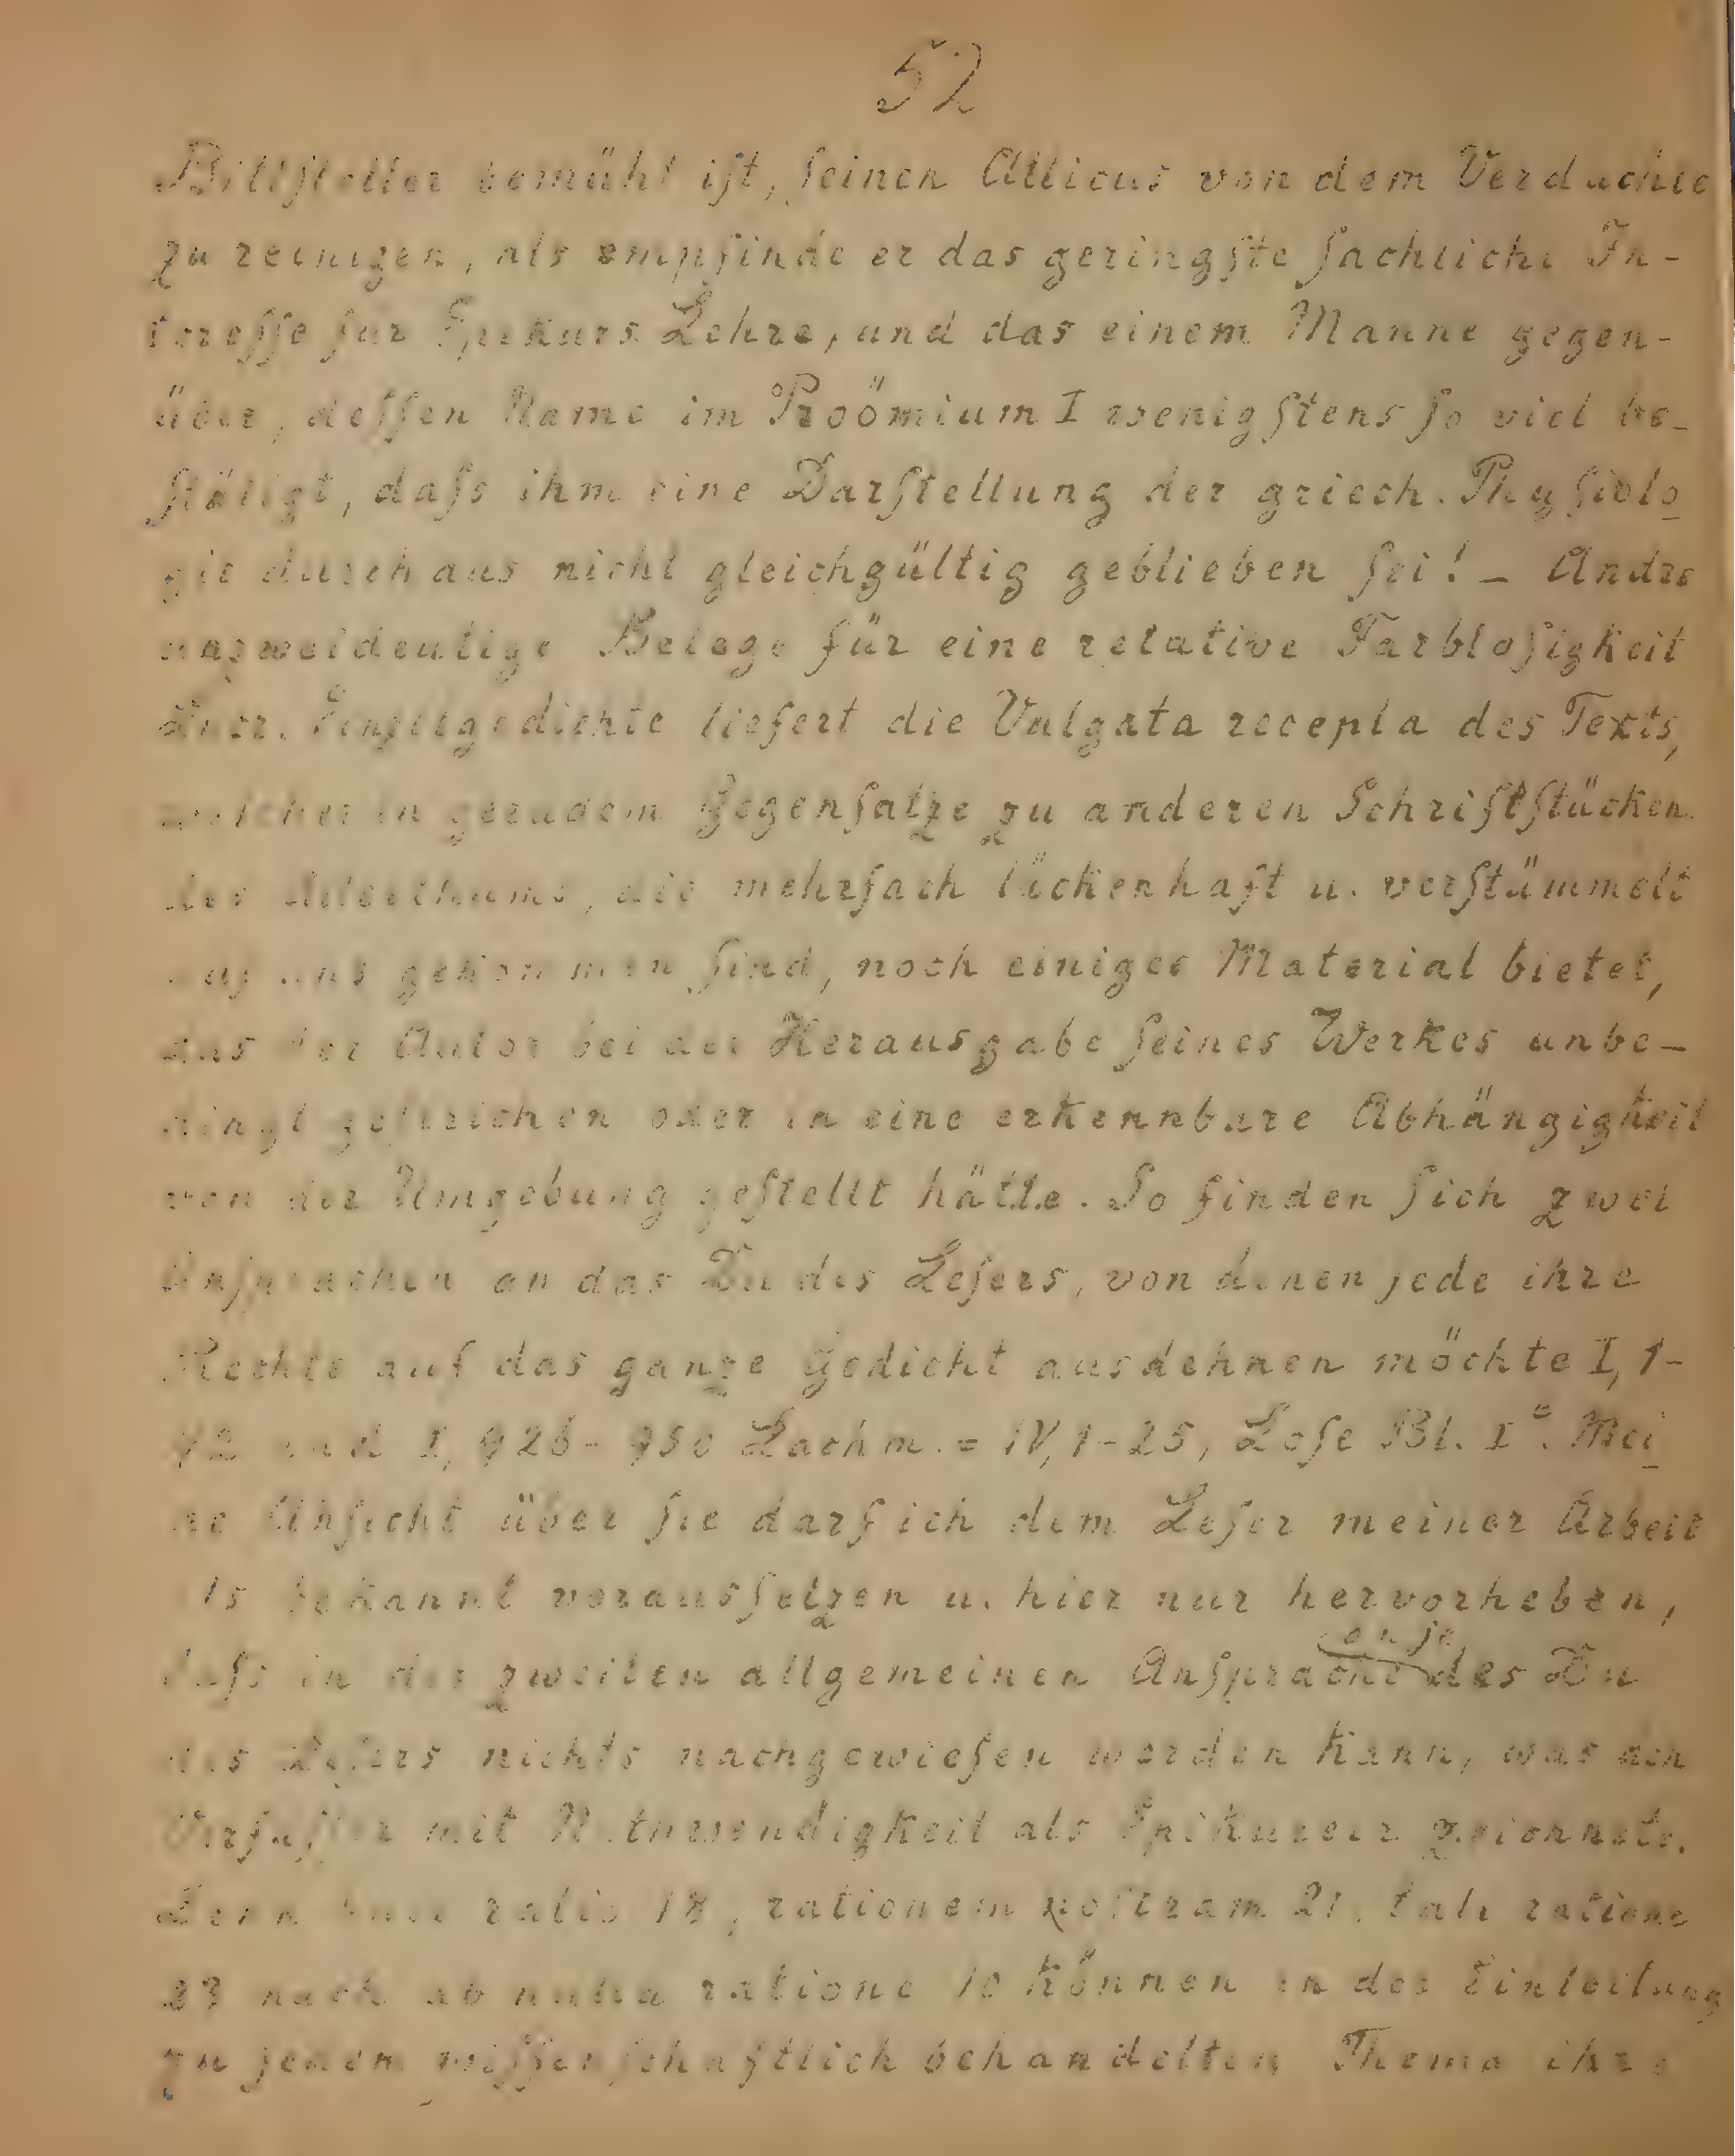 52
Bittſteller bemüht iſt, ſeinen Atticus von dem Verdachte
zu reinigen, als empfinde er das geringſte ſachliche In-
tereſſe für Epikurs Lehre, und das einem Manne gegen-
über, deſſen Name im Proömium I wenigſtens ſo viel be-
ſtätigt, daſs ihm eine Darſtellung der griech. Phyſiolo
gie durchaus nicht gleichgültig geblieben ſei! – Andre
unzweideutige Belege für eine relative Farbloſigkeit
Lucr. Einzelgedichte liefert die Vulgata recepta des Texts,
welcher in geradem Gegenſatze zu anderen Schriftſtücken
des Alterthums, die mehrfach lückenhaft u. verſtümmelt
auf uns gekommen ſind, noch einiges Material bietet,
das der Autor bei der Herausgabe ſeines Werkes unbe-
dingt geſtrichen oder in eine erkennbare Abhängigkeit
von der Umgebung geſtellt hätte. So finden ſich zwei
Anſprachen an das Du des Leſers, von denen jede ihre
Rechte auf das ganze Gedicht ausdehnen möchte I, 1-
42 und I, 926-950 Lachm. = IV, 1-25, Loſe Bl. I". Mei
ne Anſicht über ſie darf ich dem Leſer meiner Arbeit
als bekannt vorausſetzen u. hier nur hervorheben,
daſs in der zweiten allgemeinen Anſprache des Du
des Leſers nichts nachgewieſen werden kann, was den
Verfaſſer mit Notwendigkeit als Epikureer zeichnete.
Denn ratio 18, rationem noſtram 21, tali ratione
23 noch ab nulla ratione 10 können in der Einleitung
zu jenem wiſſenſchaftlich behandelten Thema ihre